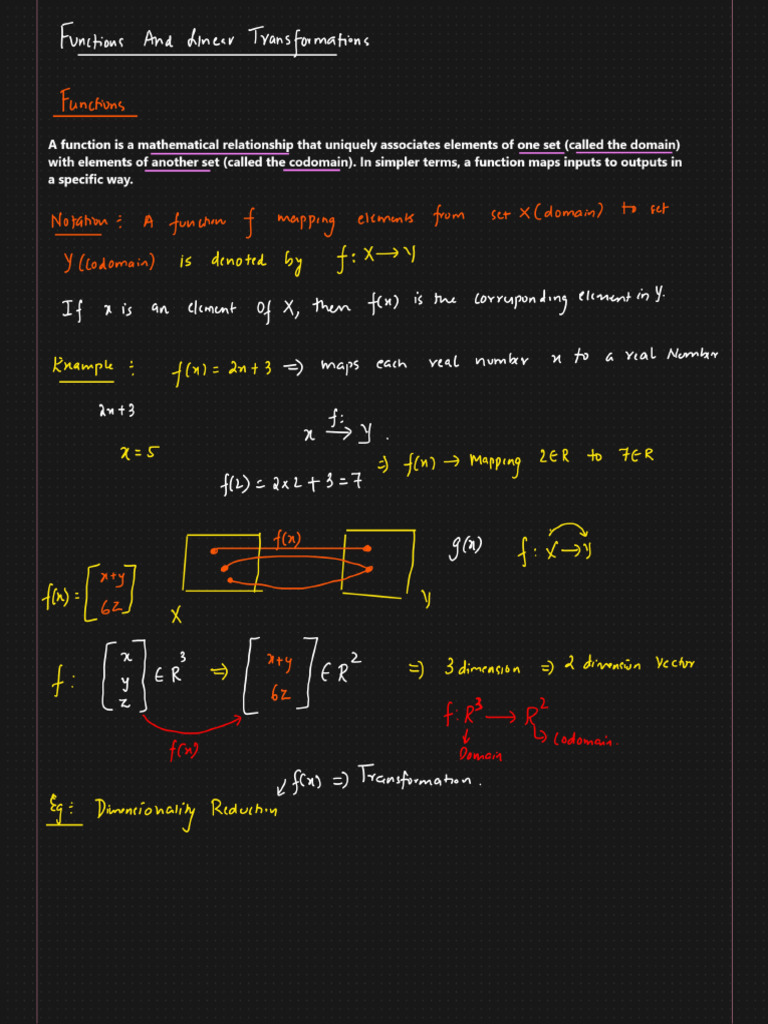 Functions And Linear Transformations
Functions
A function is a mathematical relationship that uniquely associates elements of one set (called the domain)
with elements of another set (called the codomain). In simpler terms, a function maps inputs to outputs in
a specific way.
Notation : A function f mapping elements from set X (domain) to set
Y (Codomain) is denoted by f : X → Y
If x is an element of X, then f(x) is the corresponding element in Y.
Example : f(x) = 2x + 3 ⇒ maps each real number x to a real Number
2x + 3
x = 5
f:
x → y .
f(2) = 2 x 2 + 3 = 7
⇒ f(x) → Mapping 2 ∈ R to 7 ∈ R
f(x)
X
Y
g(x)
f : X → Y
f(x) = [x+y
6z]
f : [x
y
z] ∈ R³ ⇒ [x+y
6z] ∈ R² ⇒ 3 dimension ⇒ 2 dimension vector
f(x)
f: R³ → R²
Domain
Codomain.
↙ f(x) ⇒ Transformation .
Eg : Dimensionality Reduction